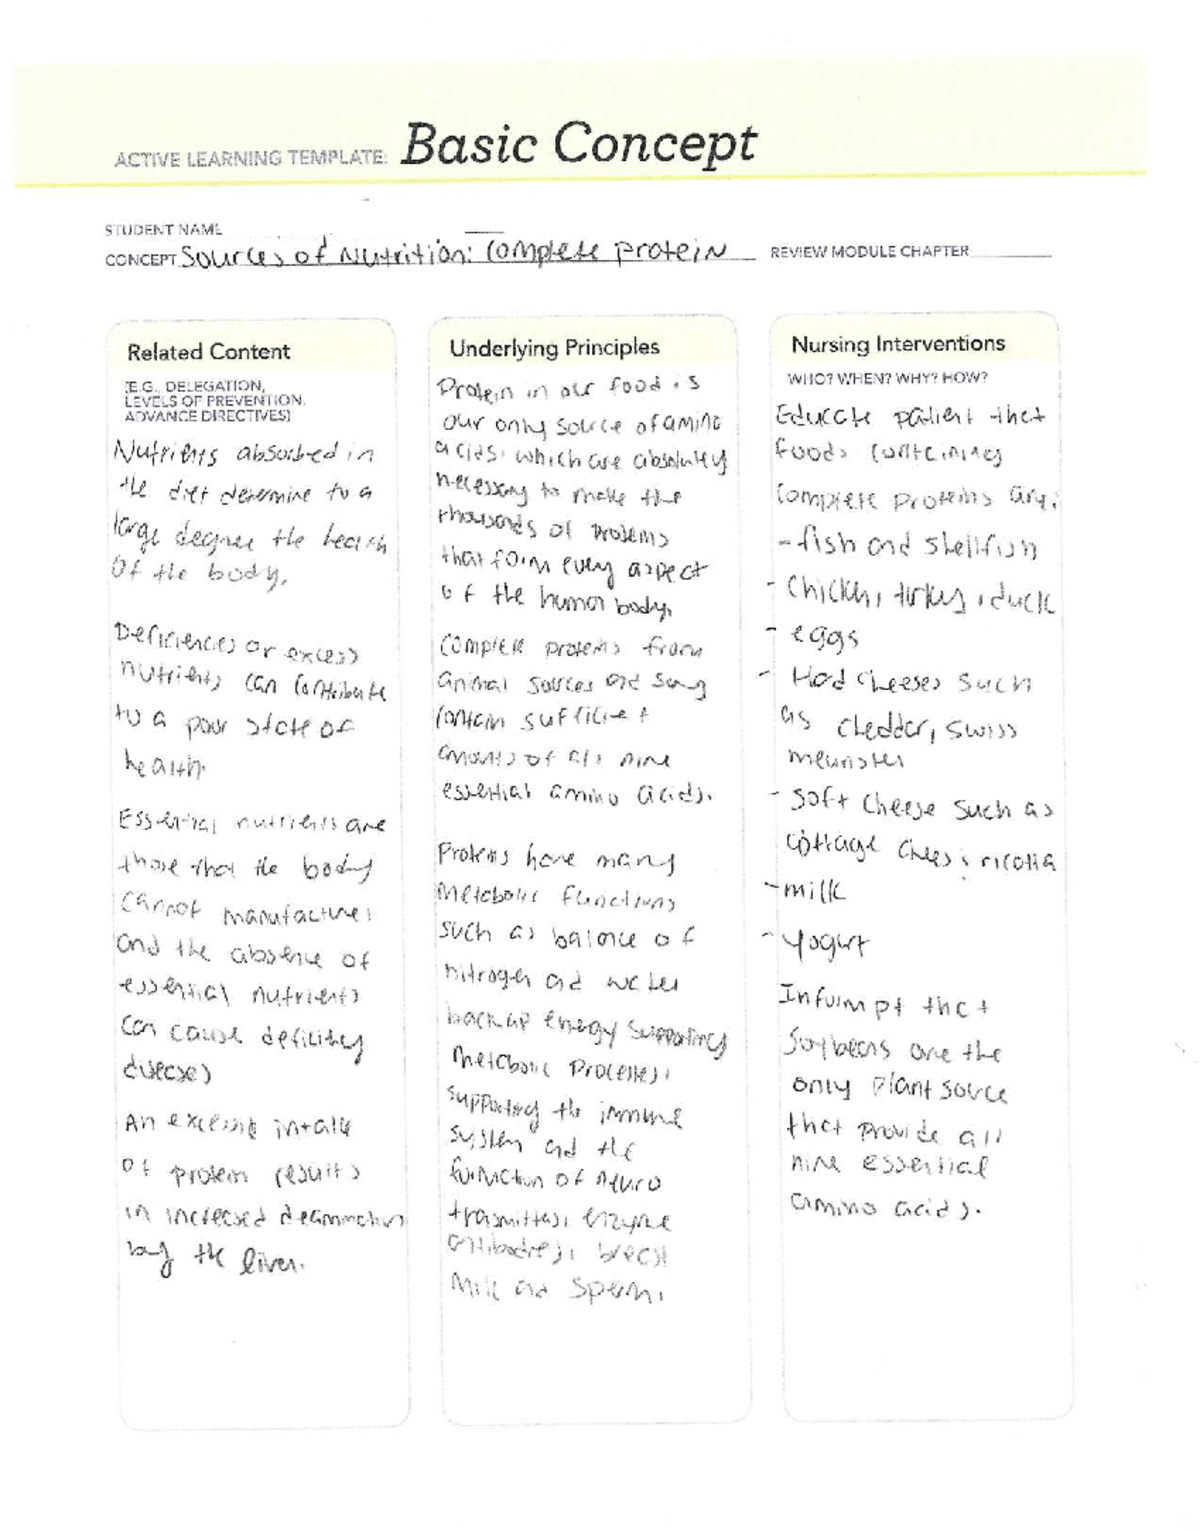 ACTIVE LEARNING TEMPLATE: Basic Concept
STUDENT NAME
CONCEPT Sources of Nutrition: Complete protein REVIEW MODULE CHAPTER
Related Content
(E.G., DELEGATION,
LEVELS OF PREVENTION,
ADVANCE DIRECTIVES)
Nutrients absorbed in
the diet determine to a
large degree the health
Of the body.
Deficiencies or excess
nutrients can contribute
to a poor state of
health.
Essential nutrients are
those that the body
cannot manufacture,
and the absence of
essential nutrients
can cause deficiency
diseases
An excessive intake
of protein results
in increased deamination
by the liver.
Underlying Principles
Protein in our food is
our only source of amino
acids, which are absolutely
necessary to make the
thousands of proteins
that form every aspect
of the human body.
Complete proteins from
animal sources and soy
contain sufficient
amounts of all nine
essential amino acids.
Proteins have many
Metabolic functions
such as balance of
nitrogen and water
backup energy supporting
Metabolic Processes,
supporting the immune
system and the
function of neuro
transmitters, enzyme
antibodies, breast
Milk and sperm.
Nursing Interventions
WHO? WHEN? WHY? HOW?
Educate patient that
foods containing
complete proteins are:
- fish and shellfish
- Chicken, turkey, duck
- eggs
- Hard cheeses such
as cheddar, swiss
- soft cheese such as
cottage chees, ricotta
- milk
- yogurt
Inform pt that
Soybeans are the
only Plant source
that provide all
nine essential
amino acids.